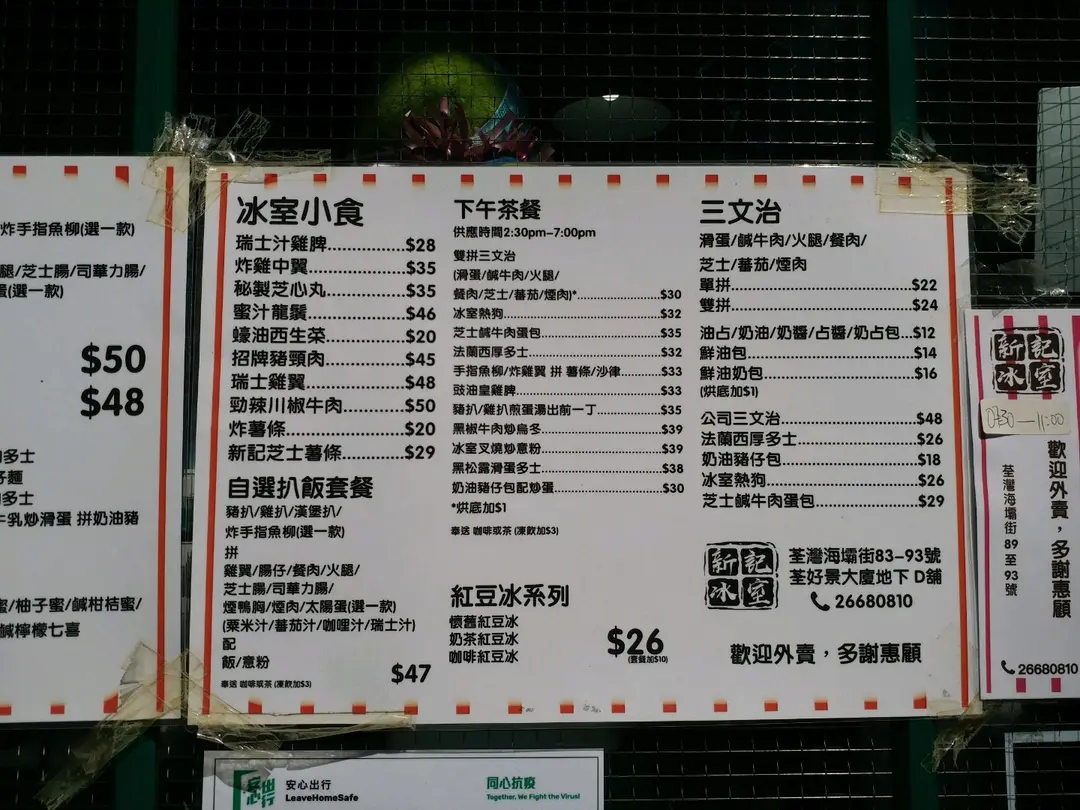 炸手指魚柳(選一款)
腿/芝士腸/司華力腸/
蛋(選一款)
$50
$48
多士
仔麵
多士
牛乳炒滑蛋 拼奶油豬
蜜/柚子蜜/鹹柑桔蜜/
鹹檸檬七喜
冰室小食
瑞士汁雞脾..............$28
炸雞中翼..................$35
秘製芝心丸..............$35
蜜汁龍鬚..................$46
蠔油西生菜..............$20
招牌豬頸肉..............$45
瑞士雞翼..................$48
勁辣川椒牛肉..........$50
炸薯條......................$20
新記芝士薯條..........$29
自選扒飯套餐
豬扒/雞扒/漢堡扒/
炸手指魚柳(選一款)
拼
雞翼/腸仔/餐肉/火腿/
芝士腸/司華力腸/
煙鴨胸/煙肉/太陽蛋(選一款)
(粟米汁/蕃茄汁/咖喱汁/瑞士汁)
配
飯/意粉
$47
奉送 咖啡或茶 (凍飲加$3)
下午茶餐
供應時間2:30pm-7:00pm
雙拼三文治
(滑蛋/鹹牛肉/火腿/
餐肉/芝士/蕃茄/煙肉)*....................$30
冰室熱狗..........................................$32
芝士鹹牛肉蛋包..............................$35
法蘭西厚多士..................................$32
手指魚柳/炸雞翼 拼 薯條/沙律..........$33
豉油皇雞脾......................................$33
豬扒/雞扒煎蛋湯出前一丁................$35
黑椒牛肉炒烏冬..............................$39
冰室叉燒炒意粉..............................$39
黑松露滑蛋多士..............................$38
奶油豬仔包配炒蛋..........................$30
*烘底加$1
奉送 咖啡或茶 (凍飲加$3)
紅豆冰系列
懷舊紅豆冰
奶茶紅豆冰
咖啡紅豆冰
$26
(套餐加$10)
三文治
滑蛋/鹹牛肉/火腿/餐肉/
芝士/蕃茄/煙肉
單拼..................................$22
雙拼..................................$24
油占/奶油/奶醬/占醬/奶占包...$12
鮮油包..............................$14
鮮油奶包..........................$16
(烘底加$1)
公司三文治......................$48
法蘭西厚多士..................$26
奶油豬仔包......................$18
冰室熱狗..........................$26
芝士鹹牛肉蛋包..............$29
新記
冰室
荃灣海壩街83-93號
荃好景大廈地下 D舖
26680810
歡迎外賣，多謝惠顧
新記
冰室
歡迎外賣，多謝惠顧
荃灣海壩街89至93號
26680810
安心出行
LeaveHomeSafe
同心抗疫
Together, We Fight the Virus!